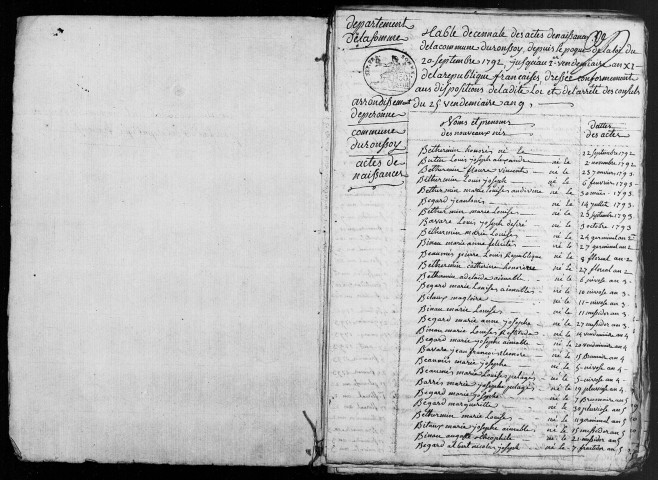 departement
de la somme
arrondissement
de peronne
commune
du ronssoy
actes de
naissances
table decennale des actes de naissances
de la commune du ronssoy, depuis lepoque de la loi du
20 septembre 1792, jusqu'au 1er vendemiaire an XI
de la republique francaise, dressée conformement
aux dispositions de ladite Loi et de l'arrêté des consuls
du 25 vendemiaire an 9,
Noms et prenoms
des nouveaux nés
dattes
des actes
Bethermin honoré né le 22 septembre 1792
Butin Louis joseph alexandre né le 2 novembre 1792
Bethermin fleure vincent né le 23 janvier 1793
Bethermin Louis joseph né le 6 fevrier 1793
Bethermin marie louise né le 3 mars 1793
Begard jean louis né le 14 juillet 1793
Bethermin marie Louise né le 25 septembre 1793
Bavare Louis joseph desiré né le 9 octobre 1793
Bethermin marie Louise né le 24 germinal an 2
Binau marie anne felicité né le 27 germinal an 2
Beaumés pierre Louis Republique né le 8 floreal an 2
Bethermin catherine honorinne né le 27 floreal an 2
Bethermin adelaide aimable né le 6 nivose an 3
Begard marie Louise aimable né le 10 nivose an 3
Bitaux magloire né le 11 nivose an 3
Binau marie Louise né le 11 messidor an 3
Begard marie anne josephe né le 27 messidor an 3
Binau marie Louise né le 14 vendemiaire an 4
Begard marie josephe aimable né le 20 vendemiaire an 4
Bavare jean francois né le 15 Brumaire an 4
Beaumés marie josephe né le 5 nivose an 4
Beaumés marie Louise pelagie né le 5 nivose an 4
Barrés marie josephe pelagie né le 19 pluviose an 4
Begard marie josephe né le 7 Brumaire an 5
Begard marguerite né le 30 pluviose an 5
Bethermin marie Louise né le 11 germinal an 5
Bitaux marie josephe aimable né le 15 messidor an 5
Binau auguste theophile né le 21 messidor an 5
Begard albert nicolas joseph né le 7 fructidor an 5